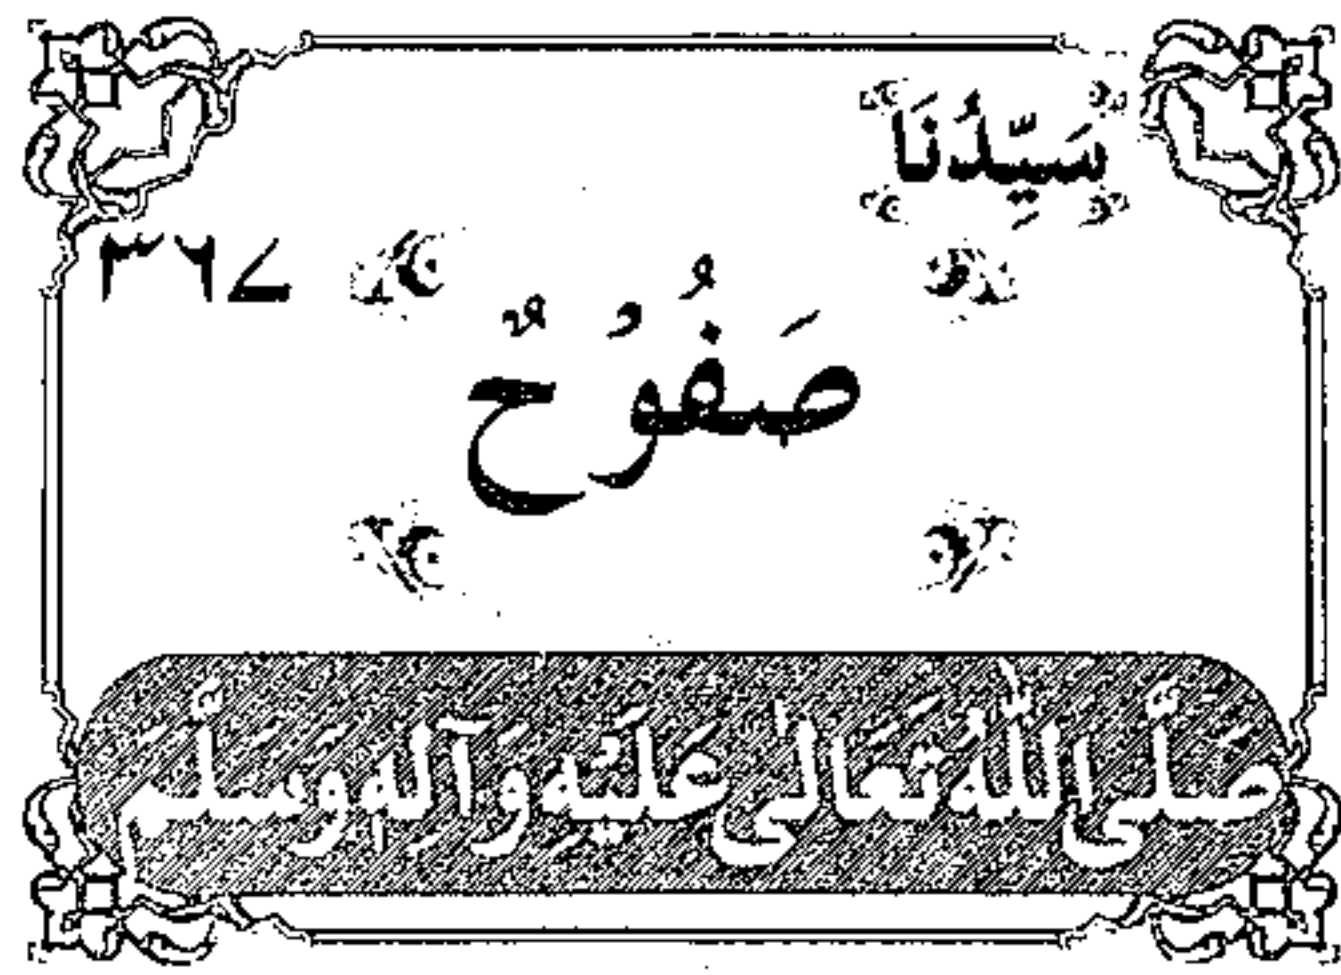 سَيِّدُنَا
۳۶۷
صَفُوْحٌ
صَلَّى اللهُ تَعَالٰى عَلَيْهِ وَآلِهٖ وَسَلَّمَ